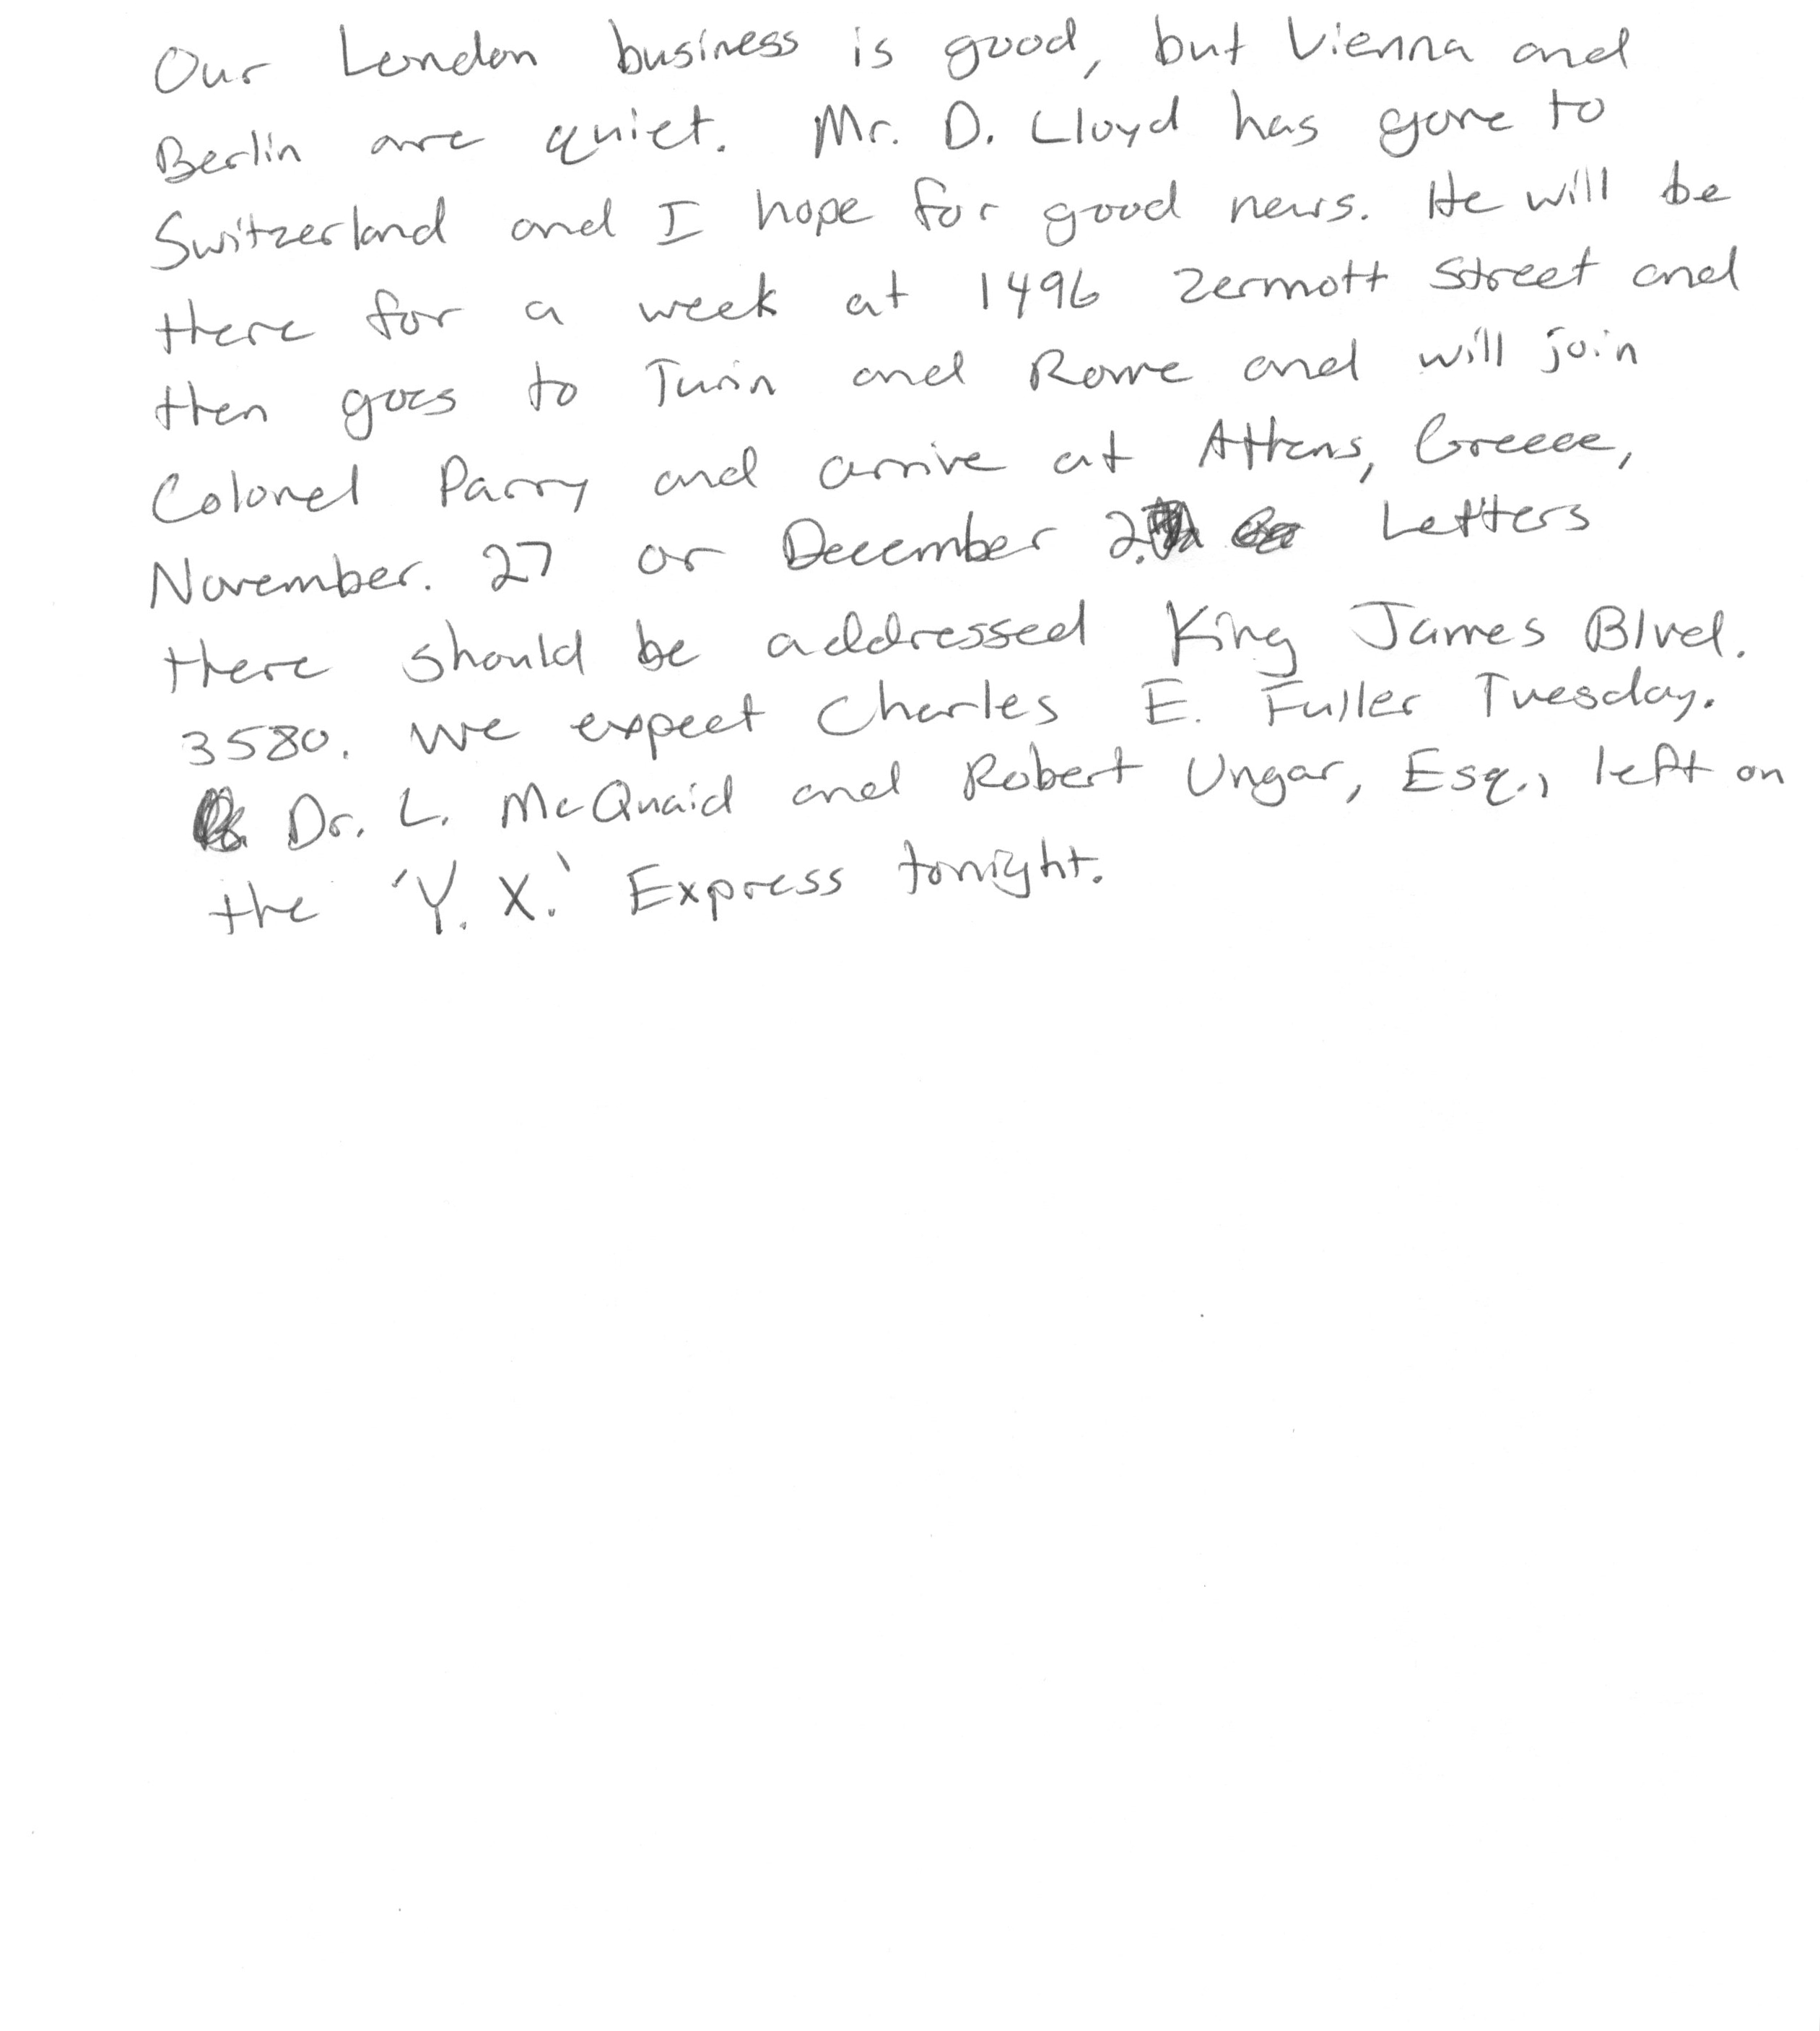 Our London business is good, but Vienna and
Berlin are quiet. Mr. D. Lloyd has gone to
Switzerland and I hope for good news. He will be
there for a week at 1496 Zermott Street and
then goes to Turin and Rome and will join
Colonel Parry and arrive at Athens, Greece,
November. 27 or December 2. Letters
there should be addressed King James Blvd.
3580. We expect Charles E. Fuller Tuesday.
Dr. L. McQuaid and Robert Ungar, Esq., left on
the 'Y. X.' Express tonight.